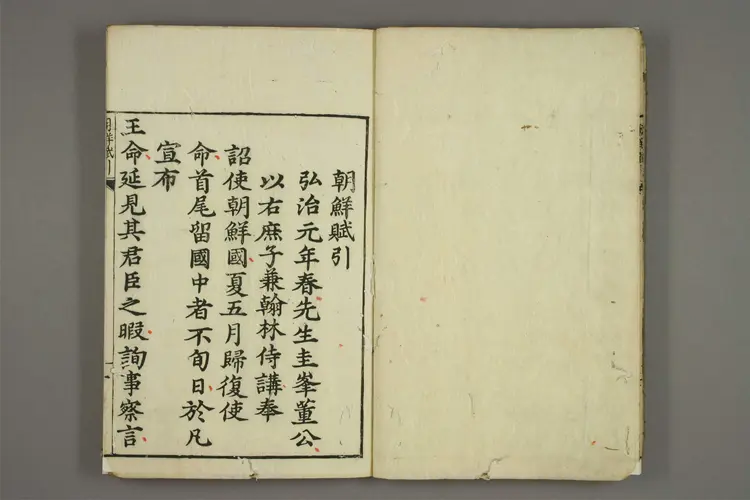 朝鮮賦引
弘治元年春先生圭峯董公
以右庶子兼翰林侍講奉
詔使朝鮮國夏五月歸復使
命首尾留國中者不旬日於凡
宣布
王命延見其君臣之暇詢事察言